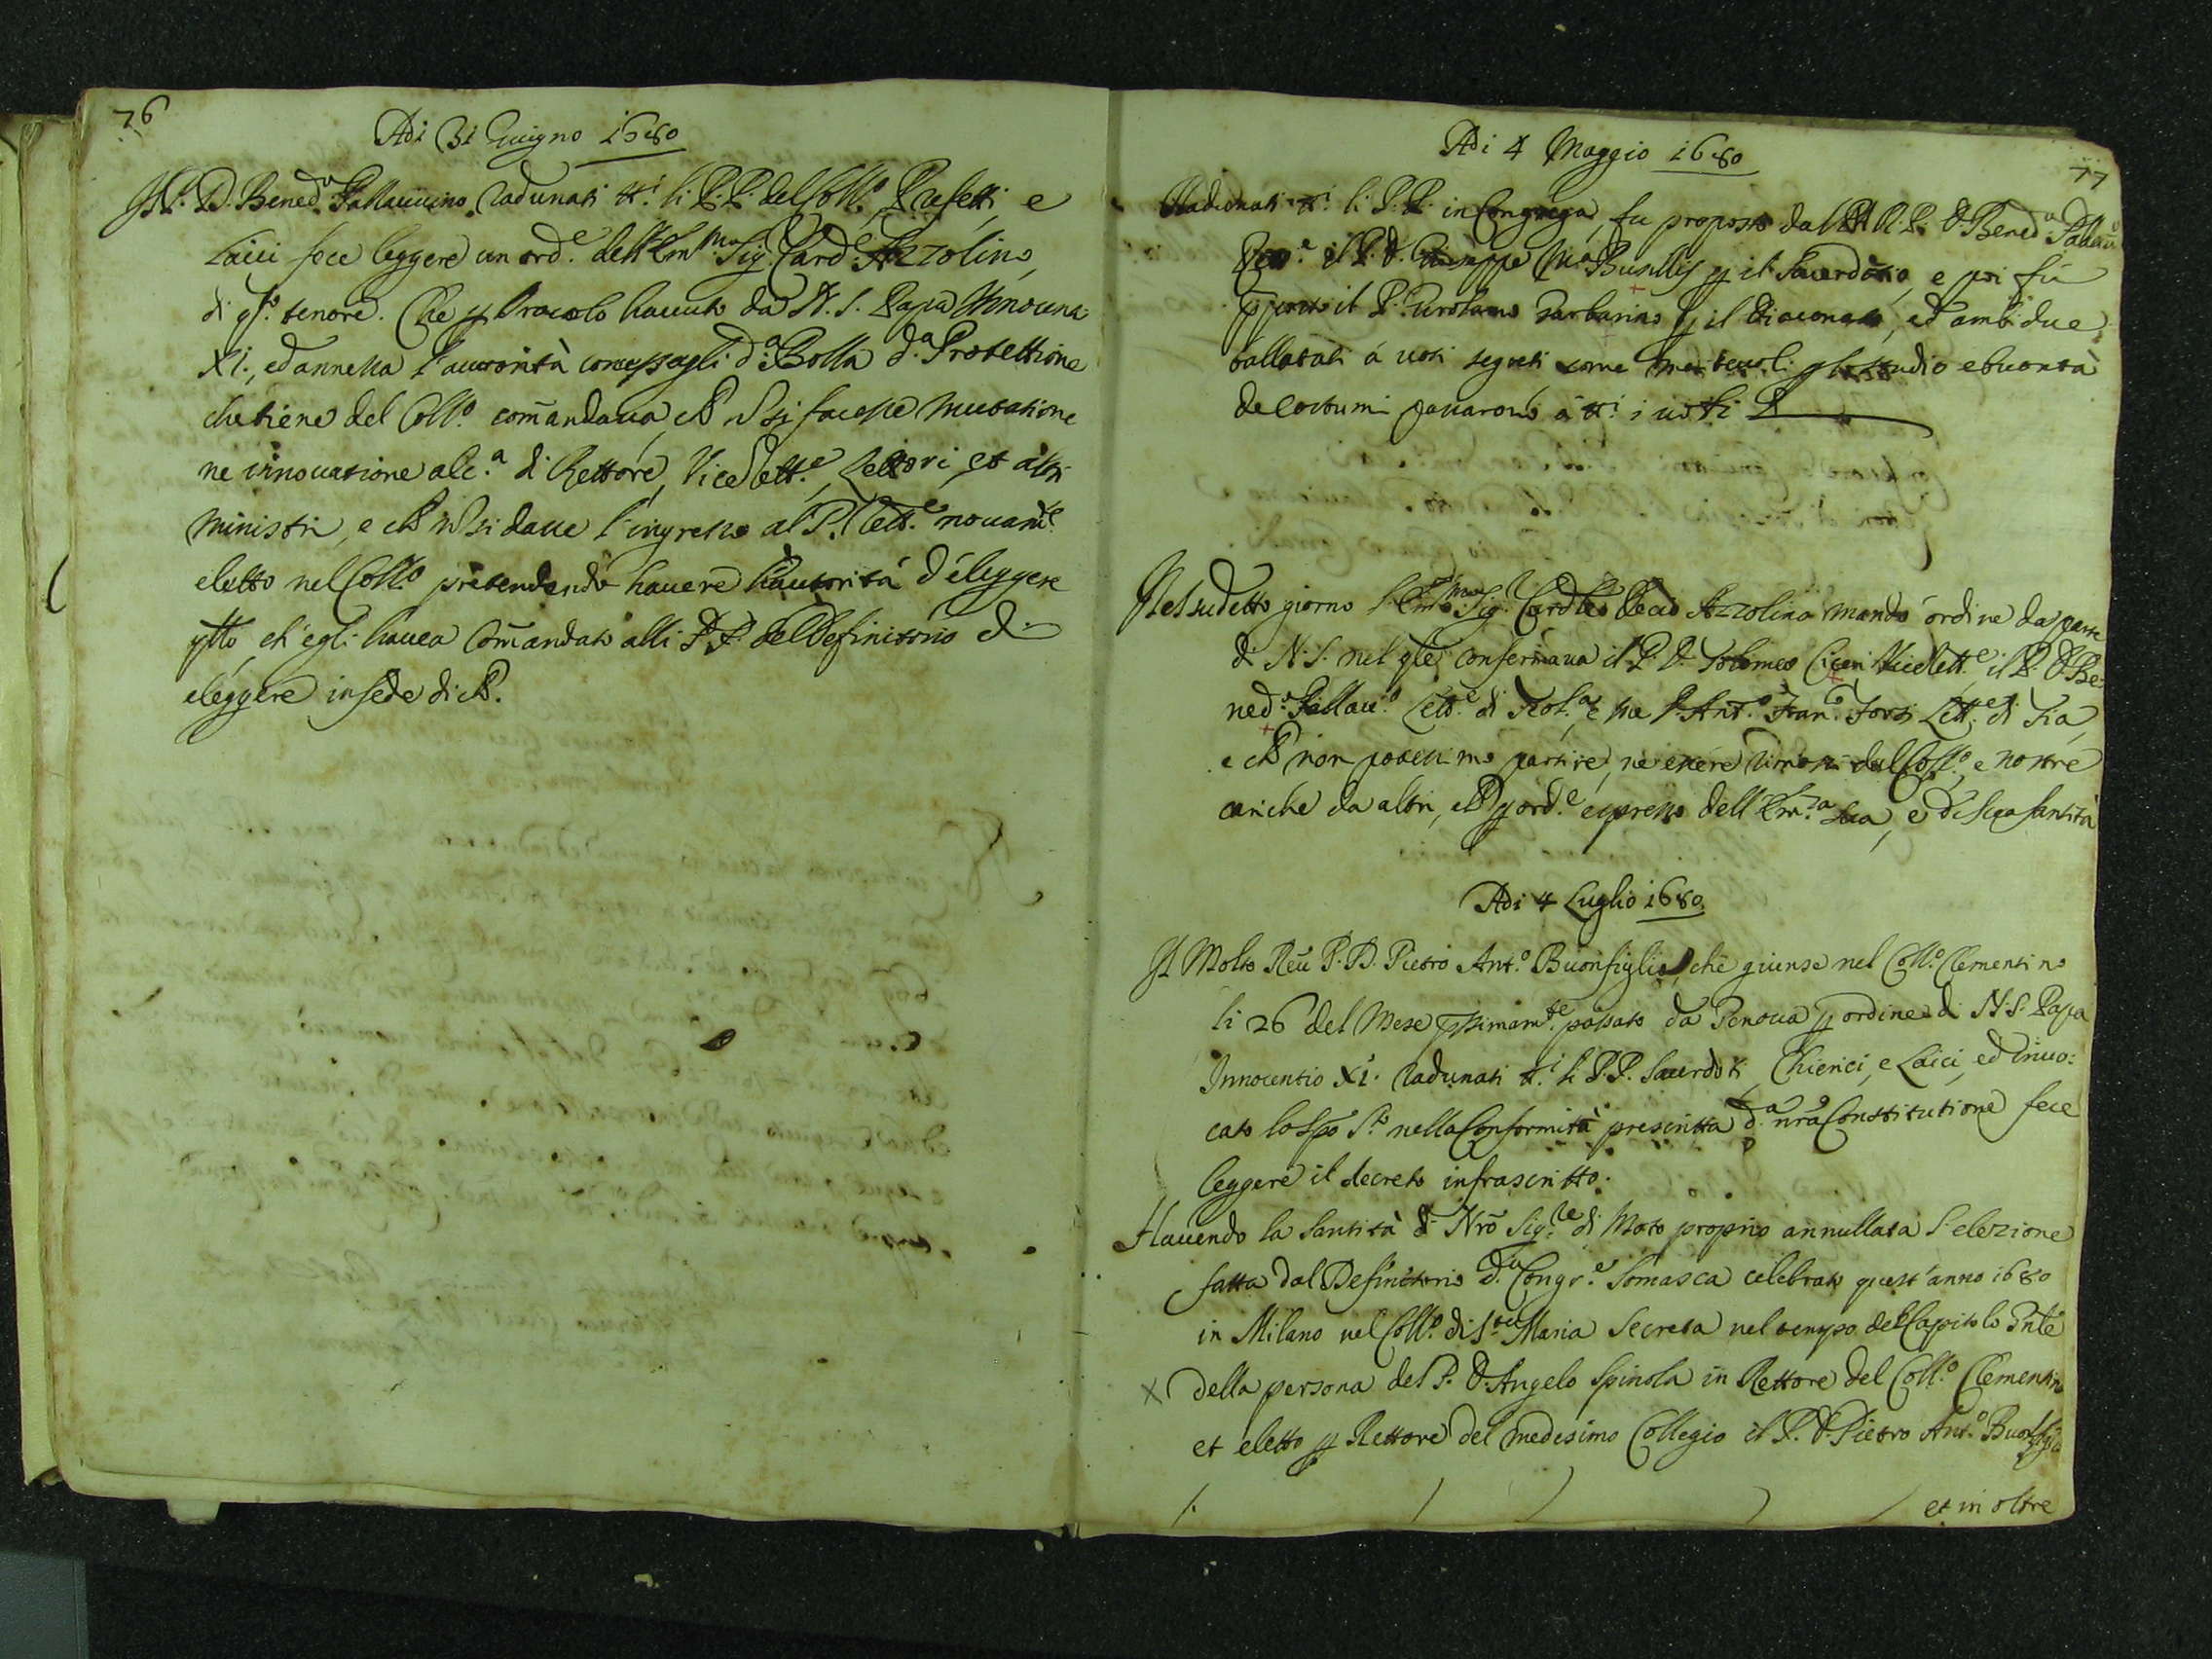 76
Adi 31 Giugno 1680
Il P. D. Bened.o Pallavicino radunati tt.i li P.P. del Coll.o Prefetti, e
Laici fece leggere un ord.e dell'Em.mo Sig. Card.e Azzolino,
di q.to tenore. Che p Oracolo havuto da N. S. Papa Innocenzo
XI., ed annessa l'autorità concessagli d.a Bolla d.a Protettione
che tiene del Coll.o com̃andava, ch si facesse mutatione
ne innovatione alc.a di Rettore, Vice Rett.e, Lettori, et altri
Ministri, e ch si dasse l'ingresso al P. Rett.e novam.te
eletto nel Coll.o pretendendo havere l'autorità d'eleggere
q̃tto, ch'egli havea Com̃andato alli P.P. del Definitorio di
eleggere in sede di
77
Adi 4 Maggio 1680
Radunati tt.i li P.P. in Congrega, fu proposto dal M. R. P. D. Bened.o Pallavi.o
il P. D. Giuseppe M.a Buselles p il Sacerdotio, e poi fù
pposto il P. Girolamo Barbarino p il Diaconato, ed ambidue
ballotati à voti segreti come meritevoli p lo studio e buontà
de costumi passarono à tt.i i voti
Nel sudetto giorno l'Em.mo Sig. Card.le Decio Azzolino mandò ordine da parte
di N. S. nel q̃le confermava il P. D. Tolomeo Ciceri Vice Rett.e il P. D. Be-
ned.o Pallavi.o Lett.e di Teol.a e me P. Ant.o Fran.o Lett.e di Fia,
e ch non potessimo partire, ne essere rimossi dal Coll.o, e nostre
cariche da altri, ch p ord.e espresso dell'Em.za Sua, e di Sua Santità
Adi 4 Luglio 1680
Il Molto Rev̄ P. D. Pietro Ant.o Buonfiglio, che giunse nel Coll.o Clementino
li 26 del Mese pssimam.te passato da Genova p ordine di N. S. Papa
Innocentio XI. radunati tt.i li P.P. Sacerdoti, Chierici, e Laici, ed invo:
cato lo Spõ S.to nella Conformità prescritta d.a nr̃a Constitutione fece
leggere il decreto infrascritto.
Havendo la Santità di Nrõ Sig.re di Moto proprio annullata l'elezione
fatta dal Definitorio d.a Congr.e Somasca celebrato quest'anno 1680
in Milano nel Coll.o di S.ta Maria Secreta nel tempo del Capitolo Gñle
X della persona del P. D. Angelo Spinola in Rettore del Coll.o Clementino
et eletto p Rettore del medesimo Collegio il P. D. Pietro Ant.o Buonfiglio
et in oltre